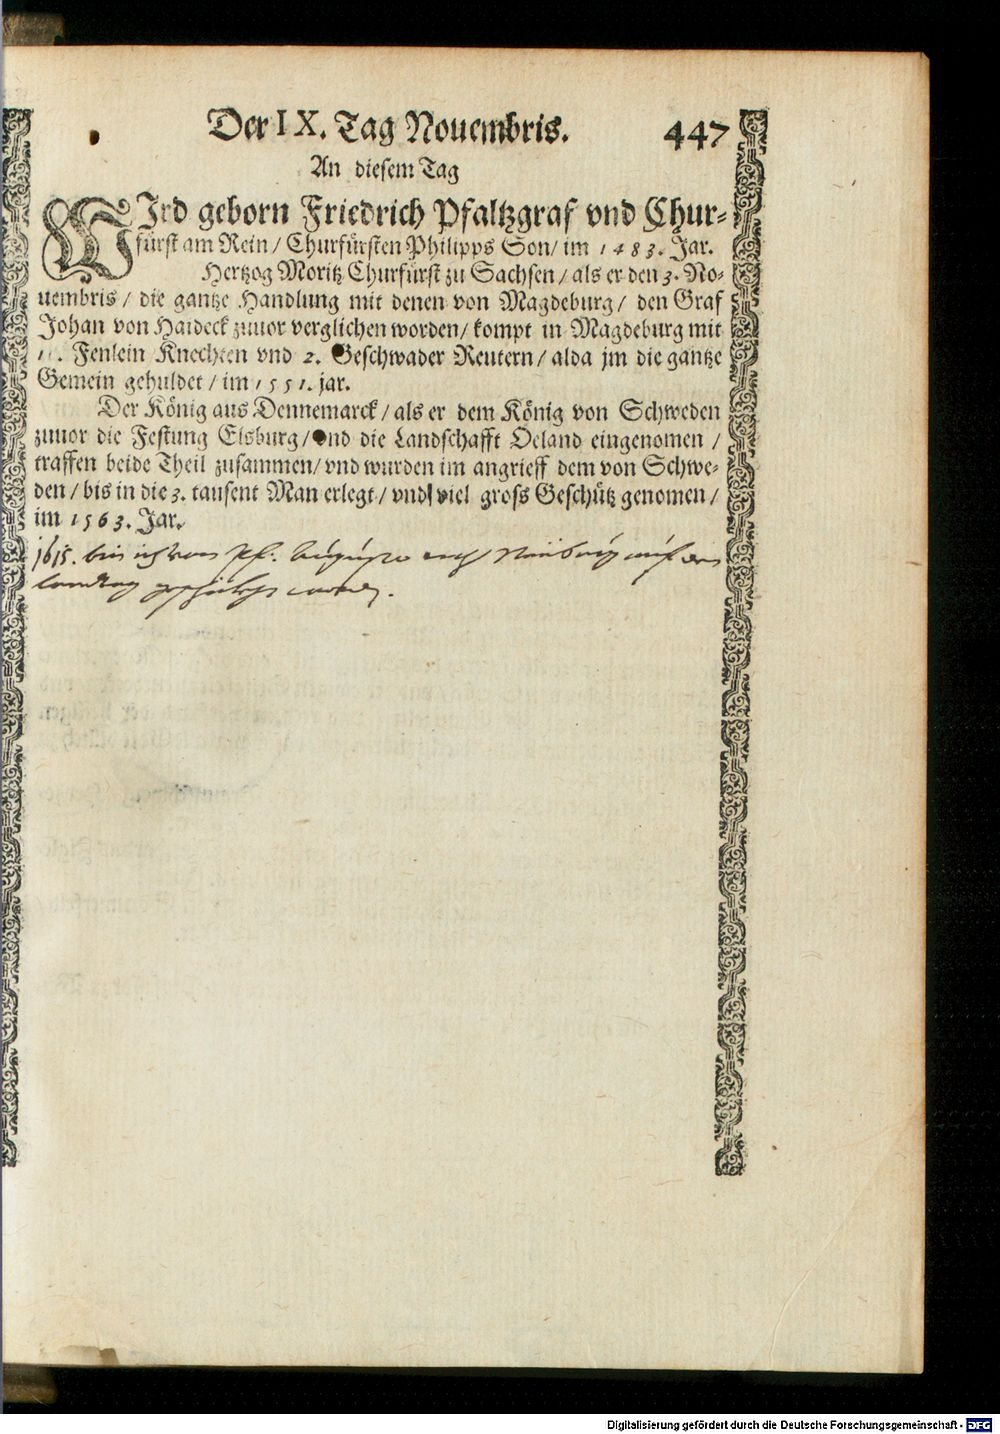 Der IX. Tag Nouembris. 447
An diesem Tag
WJrd geborn Friedrich Pfaltzgraf vnd Chur-
fürst am Rein/ Churfürsten Philipps Son/ im 1483. Jar.
Hertzog Moritz Churfürst zu Sachsen/ als er den 3. No-
uembris/ die gantze Handlung mit denen von Magdeburg/ den Graf
Johan von Haideck zuuor verglichen worden/ kompt in Magdeburg mit
Fenlein Knechten vnd 2. Geschwader Reutern/ alda jm die gantze
Gemein gehuldet/ im 1551. jar.
Der König aus Dennemarck/ als er dem König von Schweden
zuuor die Festung Elsburg/ vnd die Landschafft Oeland eingenomen/
traffen beide Theil zusammen/ vnd wurden im angrieff dem von Schwe-
den/ bis in die 3. tausent Man erlegt/ vnd viel gross Geschütz genomen/
im 1563. Jar.
1615. bin ich von Pf. Augusto nach Neuburg auf den
landtag geschickht worden.
Digitalisierung gefördert durch die Deutsche Forschungsgemeinschaft - DFG